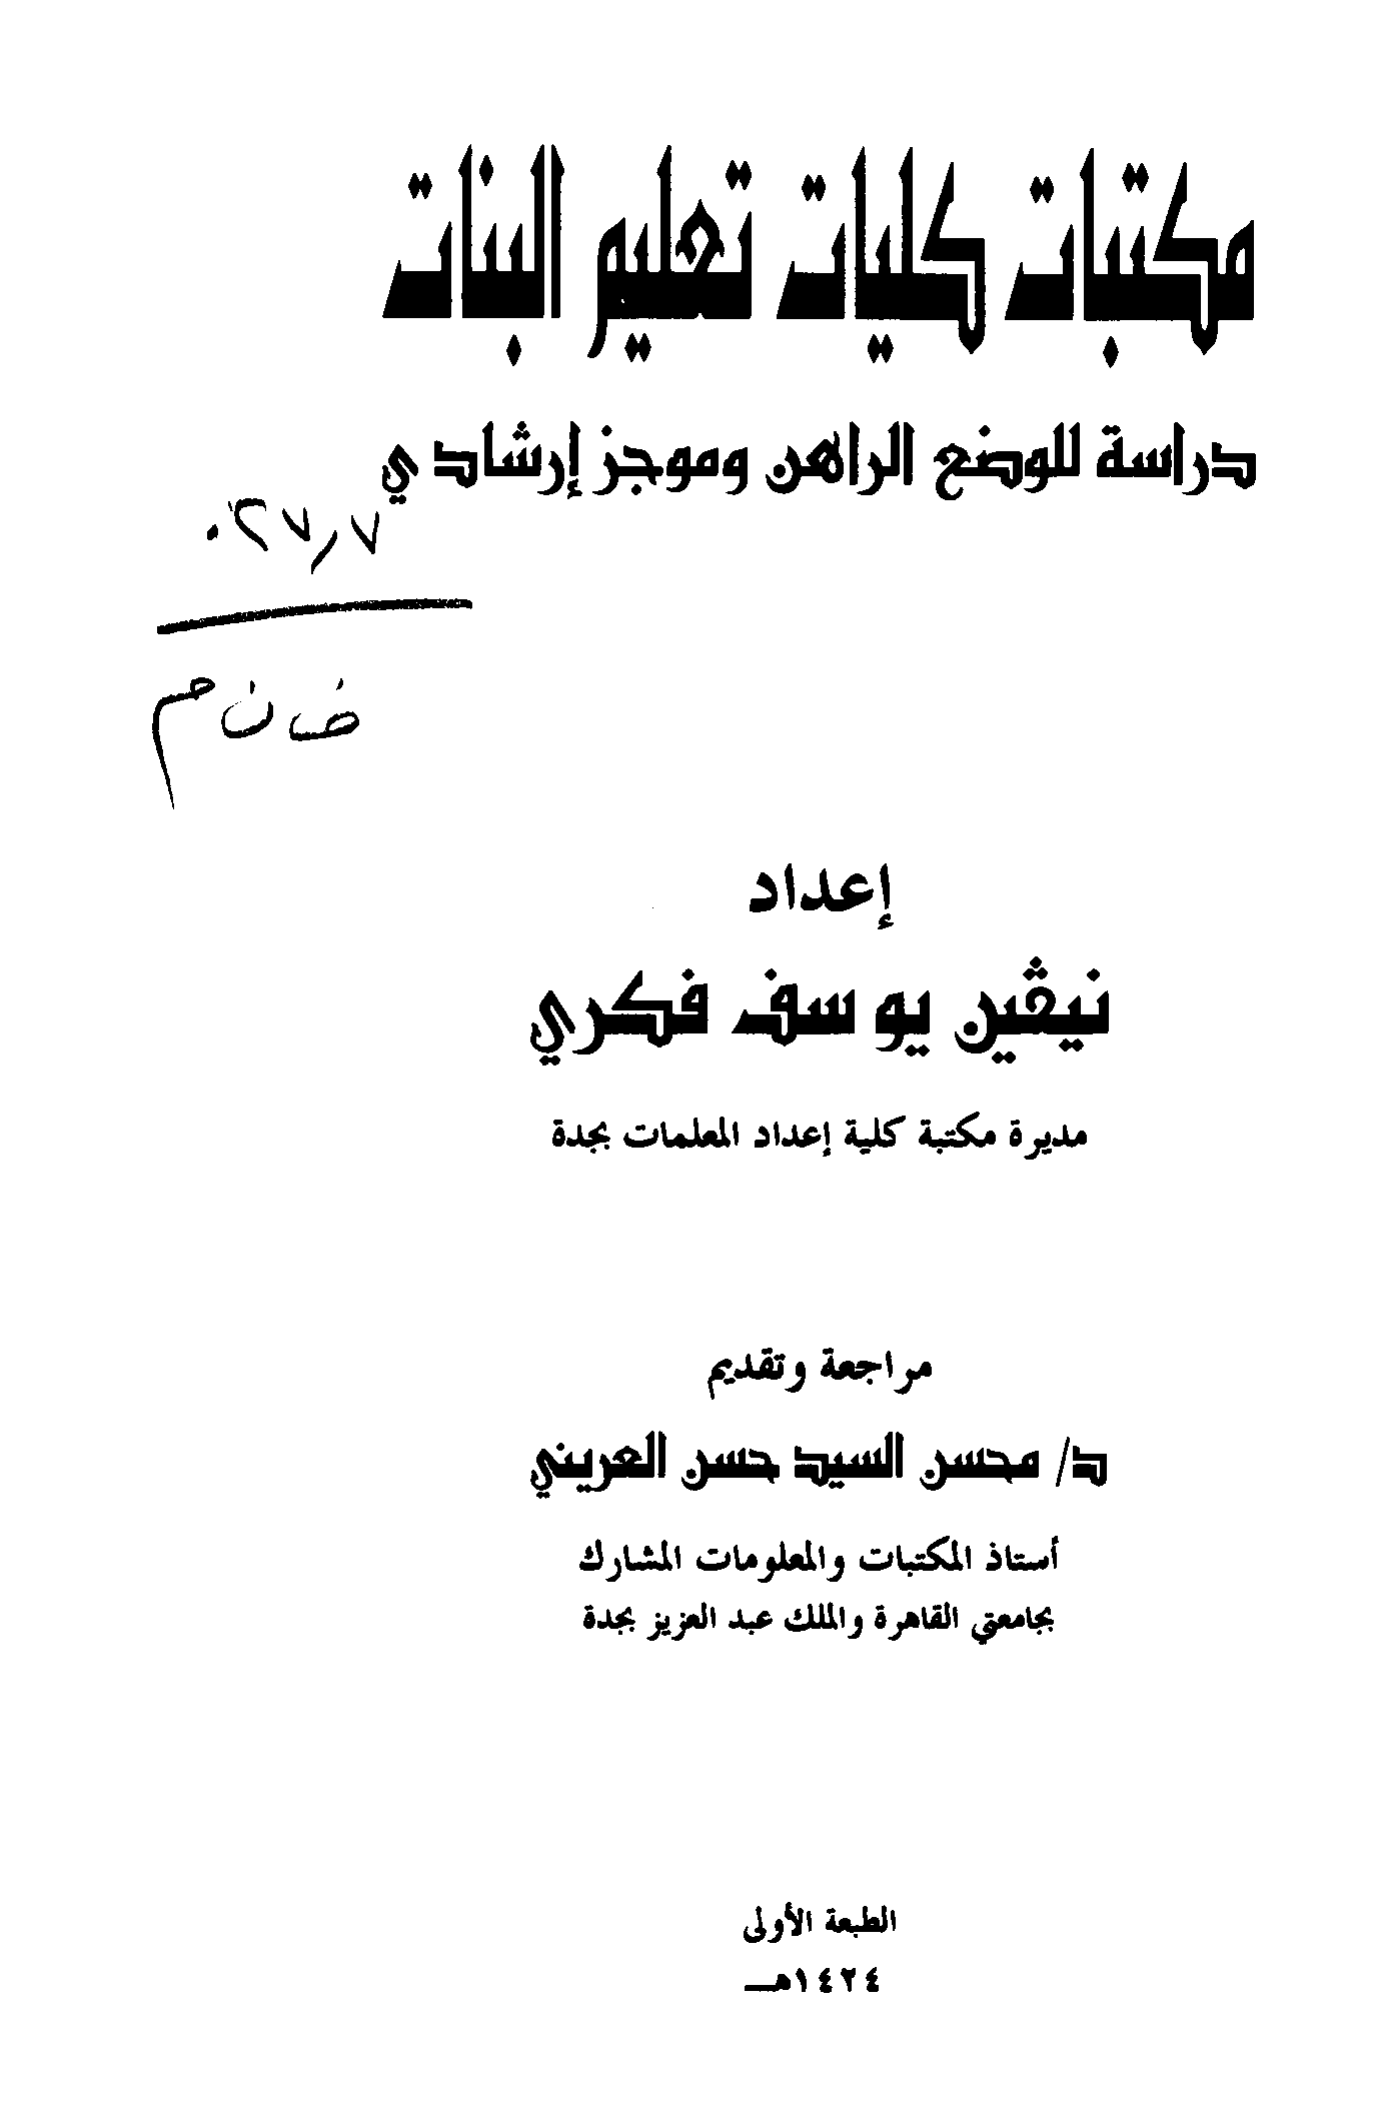 مكتبات كليات تعليم البنات
دراسة للوضع الراهن وموجز إرشادي
٠٢٧٫٧
ف ن م
إعداد
نيڤين يوسف فكري
مديرة مكتبة كلية إعداد المعلمات بجدة
مراجعة وتقديم
د/ محسن السيد حسن العريني
أستاذ المكتبات والمعلومات المشارك
بجامعتي القاهرة والملك عبد العزيز بجدة
الطبعة الأولى
١٤٢٤هـ